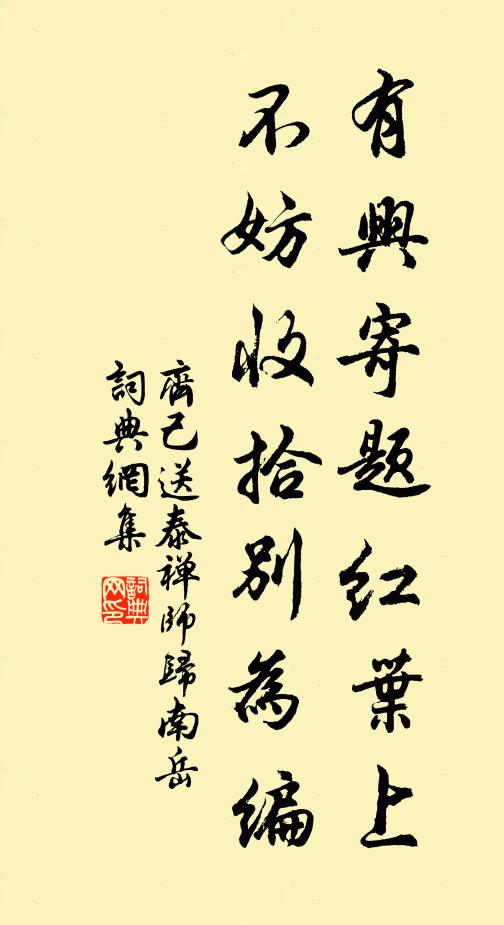 有興寄題红葉上
不妨收拾別為編
齊己送泰禅師歸南岳
詞典網集